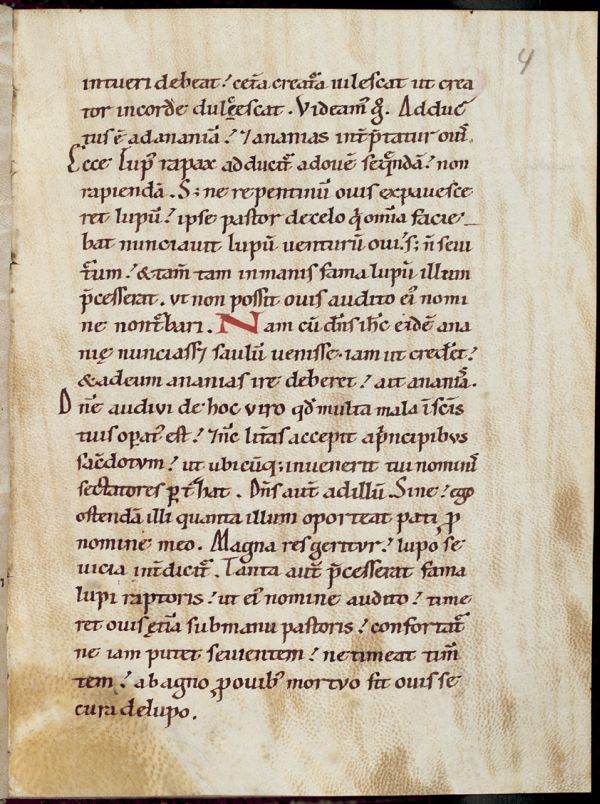 4
intueri debeat? cet̄a creat̄a uilescat ut crea
tor in corde dulcescat. Videam̄ g̊. Adduc
tus ē ad ananiā? ⁊ ananias int̄p̄tatur ouis.
Ecce lup̄ rapax adducit̄ ad ouē seq̄ndā? non
rapiendā. S; ne repentinū ouis expauesce
ret lupū? ipse pastor de celo q̇ om̄ia facie
bat nunciauit lupū venturū oui. s; ñ seui
t̄um? & tam̄ tam inmanis fama lupū illum
p̄cesserat. ut non possit ouis audito ei᾽ nomi
ne non t̄bari. Nam cū dn̄s ih̄c eidē ana
nię nunciass& saulū uenisse. iam ut credet̄?
& ad eum ananias ire deberet? ait ananias.
Dn̄e audiui de hoc viro qd̄ multa mala sc̄is
tuis opat᾽ est? ⁊ nc̄ lit̄as accepit a p̄ncipibus
sac̄dotum? ut ubicūq; inuenerit tui nominis
sectatores pt̄hat. Dn̄s aut̄ ad illū. Sine? ego
ostendā illi quanta illum oporteat pati ꝓ
nomine meo. Magna res geritur? lupo se
uicia int̄dicit̄. Tanta aut̄ p̄cesserat fama
lupi raptoris? ut ei᾽ nomine audito? time
ret ouis etiā sub manu pastoris? confortat̄
ne iam putet seuientem? ne timeat tim̄
tem? ab agno ꝓ ouib᾽ mortuo fit ouis se
cura de lupo.